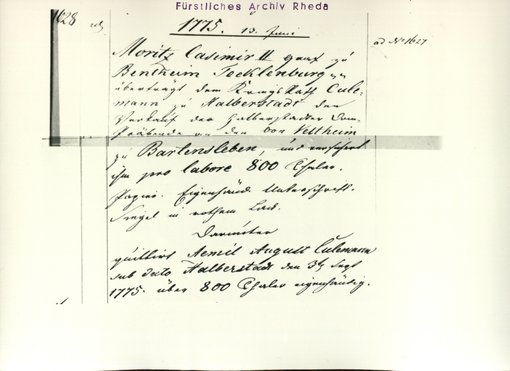 Fürstliches Archiv Rheda
1628
1775. 13. Juni
ad No 1627
Moritz Casimir II graf zu
Bentheim Tecklenburg
überträgt dem Kriegs Rath Cule-
mann zu Halberstadt den
Verkauf der Halberstädter Dom
Präbende an den von Veltheim
zu Bartensleben, und verspricht
ihm pro labore 800 Thaler.
Papier. Eigenhänd. Unterschrift.
Siegel in rothem Lack.
Darunter
quittirt Aemil August Culemann
sub dato Halberstadt den Sept
1775. über 800 Thaler eigenhändig.